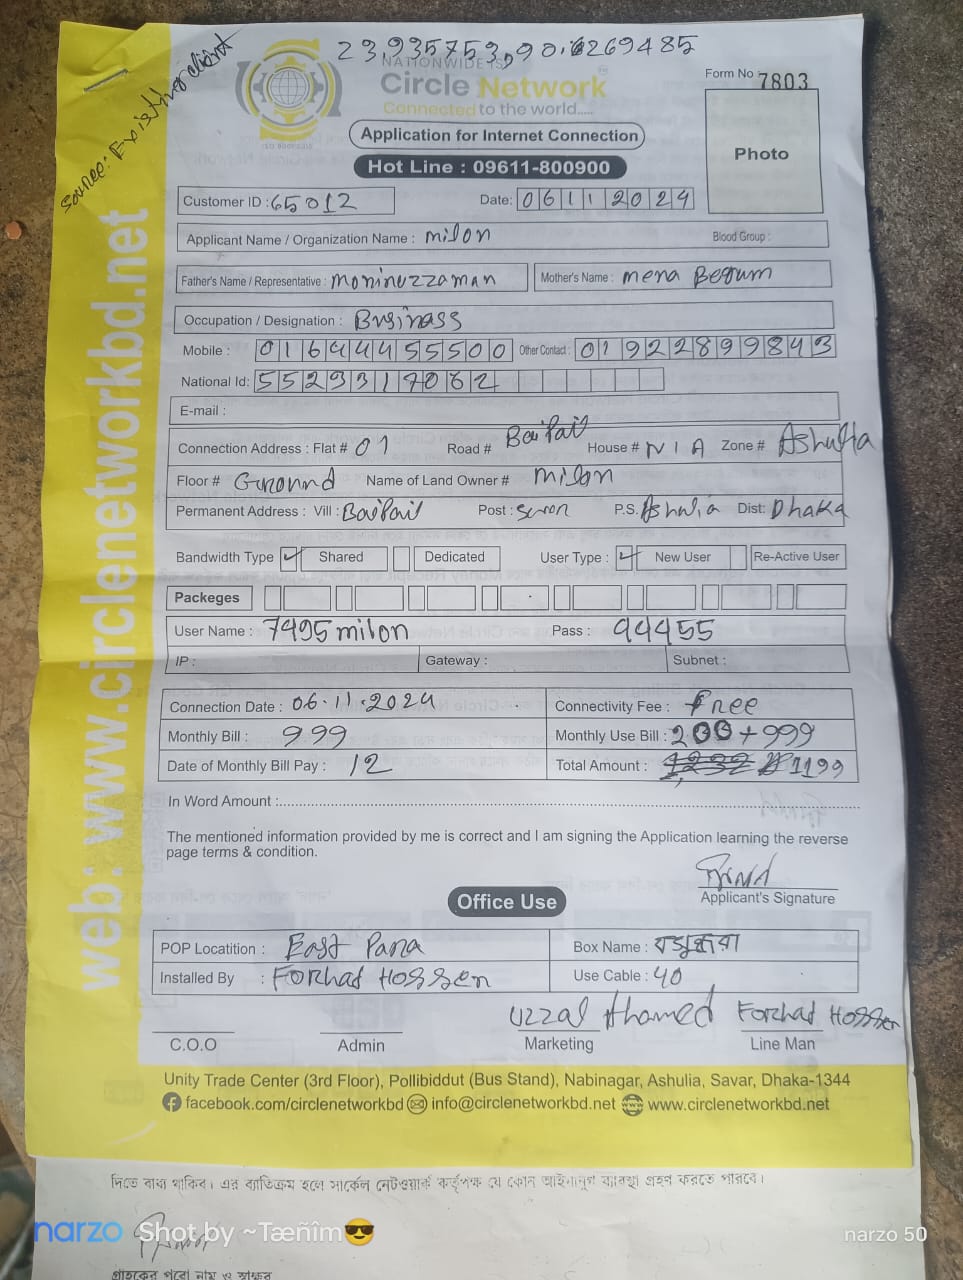 23.935753,90.6269485
source: Existing client
NATIONWIDE IS
Circle Network
Connected to the world.....
Form No 7803
Photo
Application for Internet Connection
Hot Line : 09611-800900
web: www.circlenetworkbd.net
Customer ID : 65012 Date: 06112024
Applicant Name / Organization Name : milon Blood Group :
Father's Name / Representative : moninuzzaman Mother's Name : mena Begum
Occupation / Designation : Businass
Mobile : 01644455500 Other Contact : 01922899843
National Id: 5529317062
E-mail :
Connection Address : Flat # 01 Road # Baipail House # N/A Zone # Ashulia
Floor # Ground Name of Land Owner # milon
Permanent Address : Vill : Baipail Post : P.S. Ashulia Dist: Dhaka
Bandwidth Type Shared Dedicated User Type : New User Re-Active User
Packeges
User Name : 7495milon Pass : 44455
IP : Gateway : Subnet :
Connection Date : 06.11.2024 Connectivity Fee : free
Monthly Bill : 999 Monthly Use Bill : 200+999
Date of Monthly Bill Pay : 12 Total Amount : 1199
In Word Amount :
The mentioned information provided by me is correct and I am signing the Application learning the reverse
page terms & condition.
Applicant's Signature
Office Use
POP Locatition : East Para Box Name :
Installed By : Forhad Hossen Use Cable : 40
Uzzal Ahamed Forhad Hossen
C.O.O Admin Marketing Line Man
Unity Trade Center (3rd Floor), Pollibiddut (Bus Stand), Nabinagar, Ashulia, Savar, Dhaka-1344
facebook.com/circlenetworkbd info@circlenetworkbd.net www.circlenetworkbd.net
দিতে বাধ্য থাকিব। এর ব্যতিক্রম হলে সার্কেল নেটওয়ার্ক কর্তৃপক্ষ যে কোন আইনানুগ ব্যবস্থা গ্রহন করতে পারবে।
narzo Shot by ~Tæñîm😎 narzo 50
গ্রাহকের পুরো নাম ও স্বাক্ষর